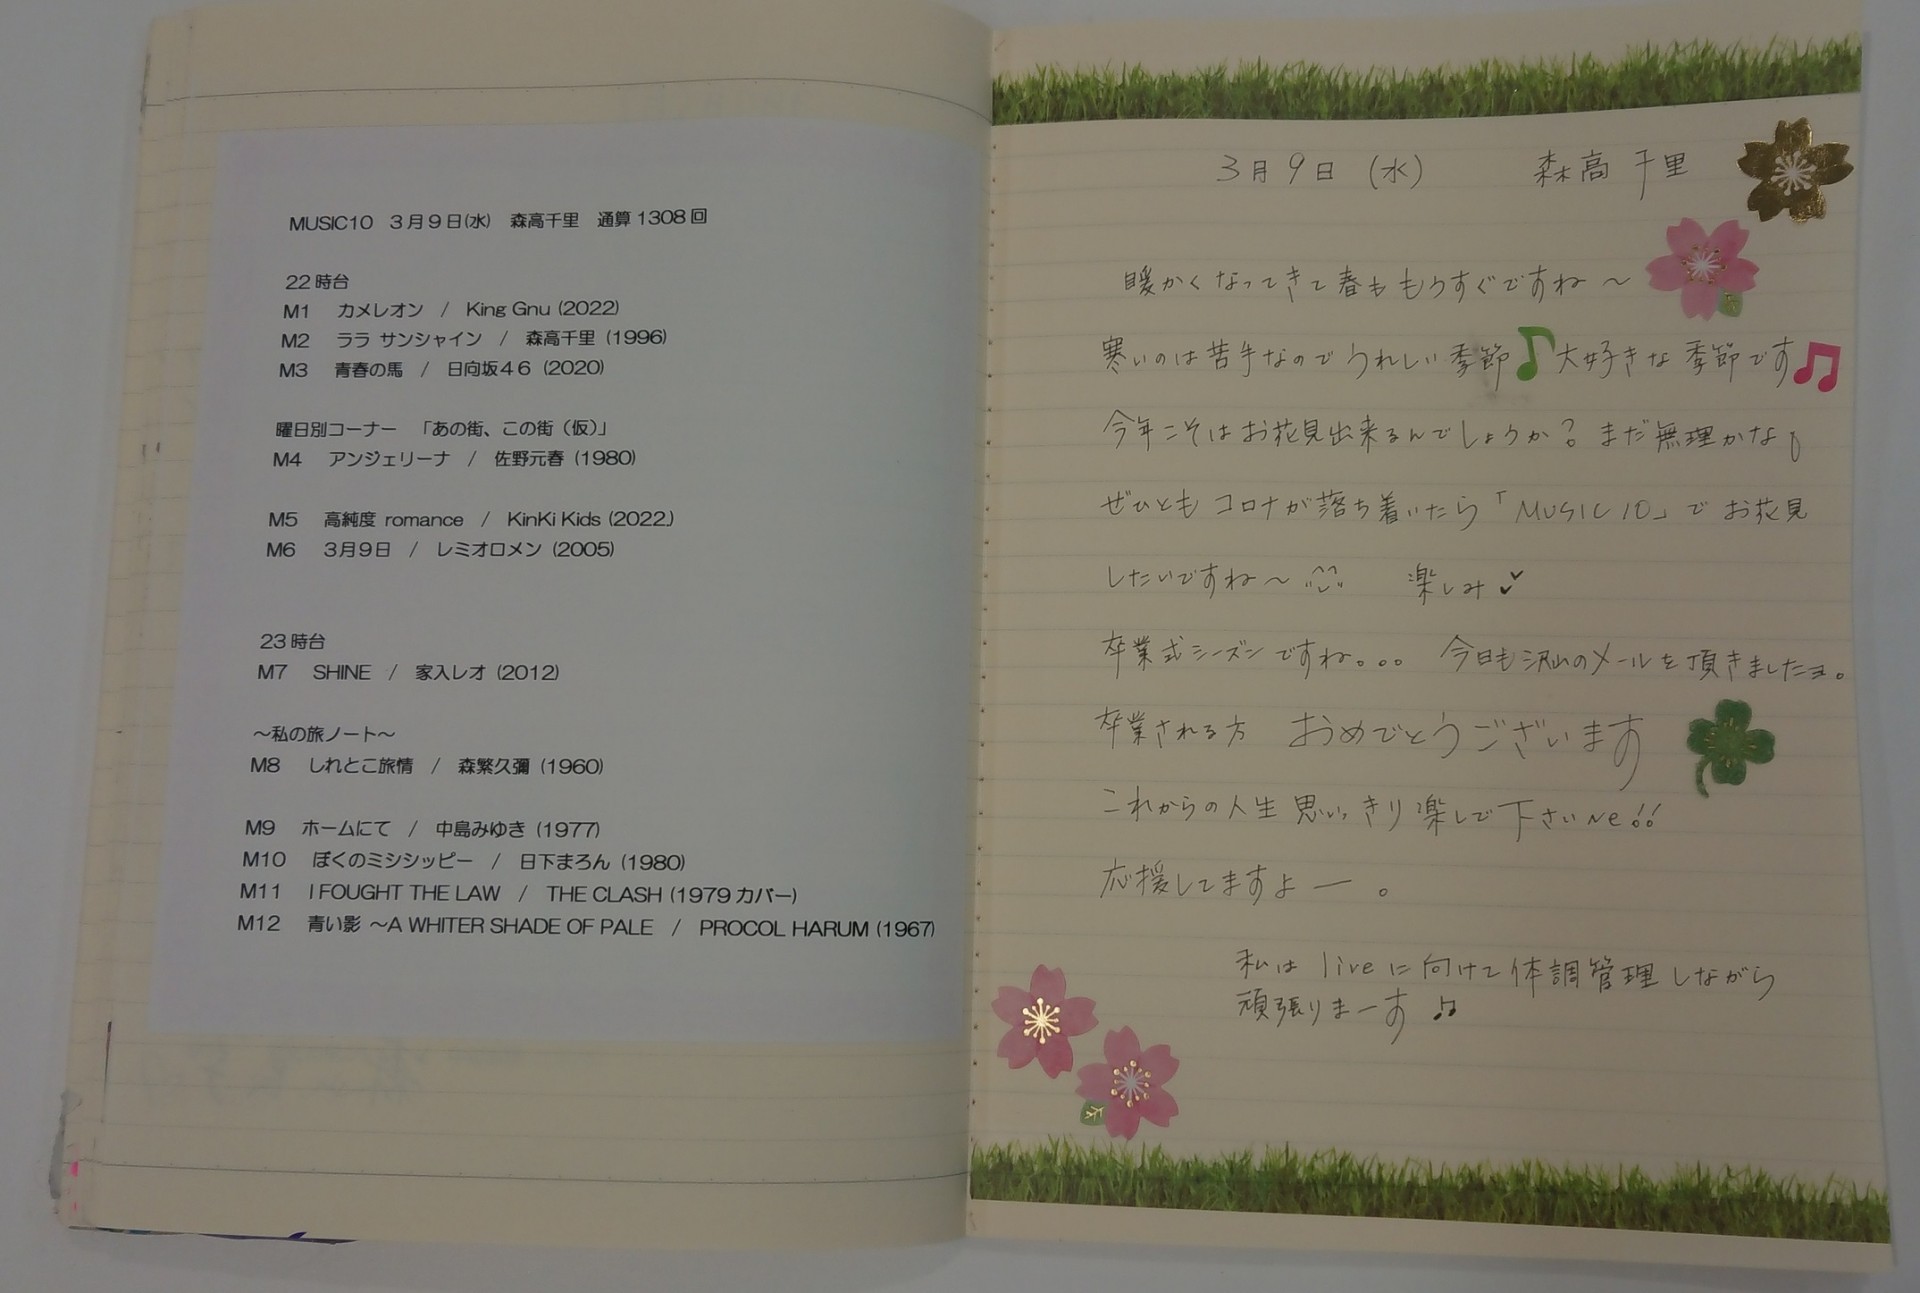 MUSIC10 3月9日(水) 森高千里 通算1308回
22時台
M1 カメレオン / King Gnu (2022)
M2 ララ サンシャイン / 森高千里 (1996)
M3 青春の馬 / 日向坂46 (2020)
曜日別コーナー 「あの街、この街（仮）」
M4 アンジェリーナ / 佐野元春 (1980)
M5 高純度 romance / KinKi Kids (2022)
M6 3月9日 / レミオロメン (2005)
23時台
M7 SHINE / 家入レオ (2012)
～私の旅ノート～
M8 しれとこ旅情 / 森繁久彌 (1960)
M9 ホームにて / 中島みゆき (1977)
M10 ぼくのミシシッピー / 日下まろん (1980)
M11 I FOUGHT THE LAW / THE CLASH (1979 カバー)
M12 青い影 ～A WHITER SHADE OF PALE / PROCOL HARUM (1967)
3月9日 (水) 森高千里
暖かくなってきて春ももうすぐですね～
寒いのは苦手なのでうれしい季節♪大好きな季節です♫
今年こそはお花見出来るんでしょうか？まだ無理かな。
ぜひともコロナが落ち着いたら「MUSIC10」でお花見
したいですね～ 楽しみ
卒業式シーズンですね。。。 今日も沢山のメールを頂きましたヨ。
卒業される方 おめでとうございます
これからの人生思いっきり楽しで下さいNe!!
応援してますよー。
私は liveに向けて体調管理しながら
頑張りまーす♫